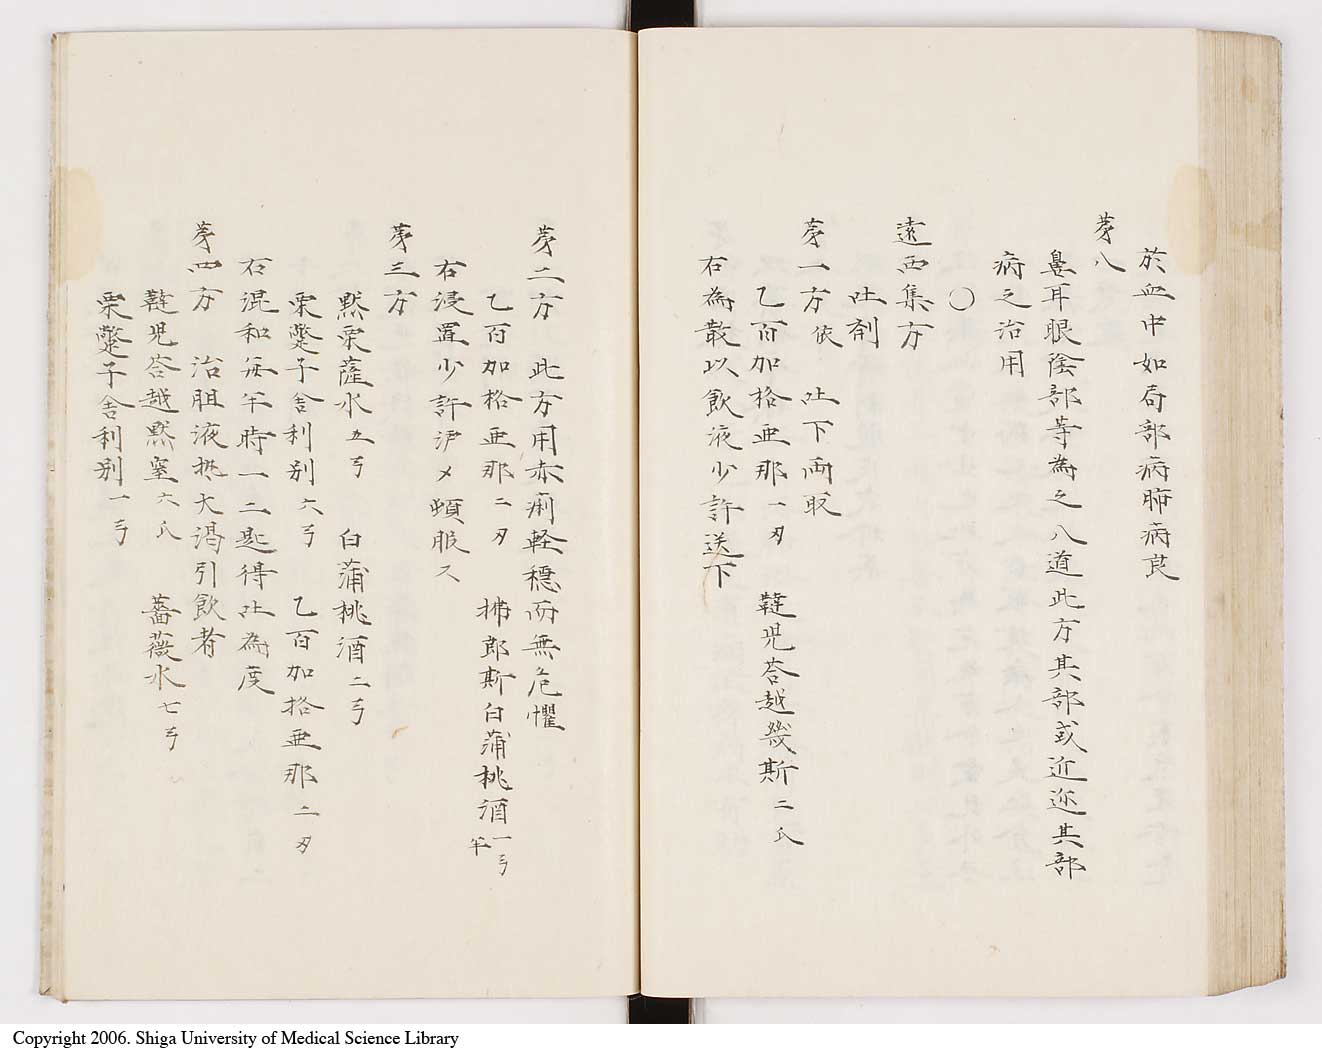 於血中如局部病肺病良
㐧八
鼻耳眼陰部等為之八道此方其部或近迩其部
病之治用
〇
遠西集方
吐剤
㐧一方 依 吐下両取
乙百加格亜那一刄 韃児荅越幾斯二氏
右為散以飲液少許送下
㐧二方 此方用赤痢軽穏而無危懼
乙百加格亜那二刄 拂郎斯白蒲桃酒一弓半
右浸置少許沪メ頓服ス
㐧三方
黙栗薩水五弓 白蒲桃酒二弓
栗鼈子舎利別六弓 乙百加格亜那二刄
右混和毎半時一二匙得吐為度
㐧四方 治胆液熱大渇引飲者
韃児荅越黙窒六氏 薔薇水七弓
栗鼈子舎利別一弓
Copyright 2006. Shiga University of Medical Science Library